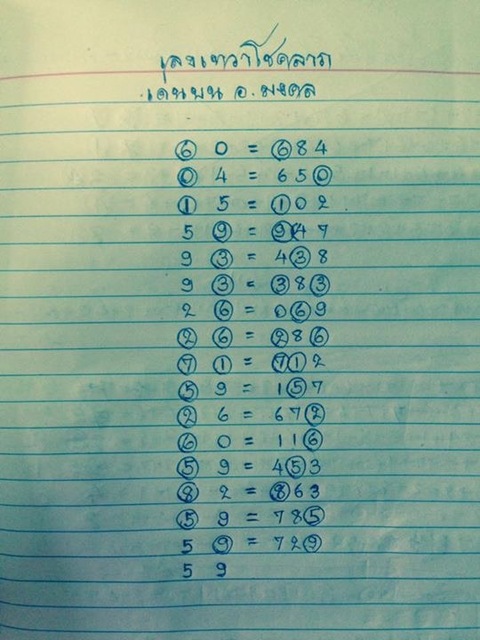 เลขเทวาโชคลาภ
เด่นบน อ.มงคล
6 0 = 684
0 4 = 650
1 5 = 102
5 9 = 947
9 3 = 438
9 3 = 383
2 6 = 069
2 6 = 286
7 1 = 712
5 9 = 157
2 6 = 672
6 0 = 116
5 9 = 453
8 2 = 863
5 9 = 785
5 9 = 729
5 9